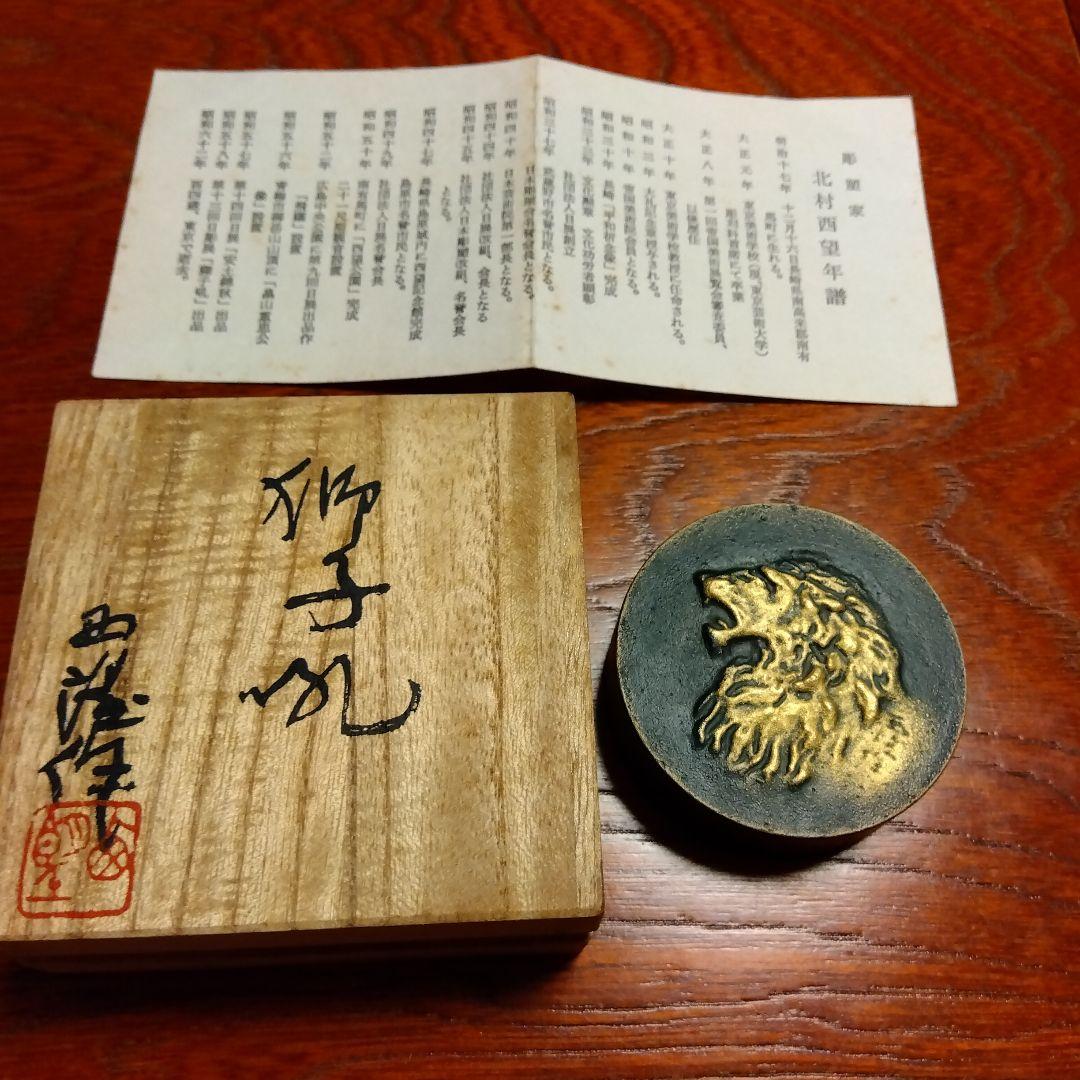 彫塑家
北村西望年譜
明治十七年 十二月十六日長崎県南高来郡南有
馬町に生れる。
大正元年 東京美術学校(現、東京芸術大学)
彫刻科首席にて卒業
大正八年 第一回帝国美術展覧会審査委員、
以後歴任
大正十年 東京美術学校教授に任命される。
昭和三年 大礼記念章授与される。
昭和十年 帝国美術院会員となる。
昭和三十年 長崎「平和祈念像」完成
昭和三十三年 文化勲章 文化功労者顕彰
社団法人日展創立
昭和三十七年 武蔵野市名誉市民となる。
日本彫塑会名誉会長となる。
昭和四十年 日本芸術院第一部長となる。
昭和四十四年 社団法人日展改組、会長となる
昭和四十五年 社団法人日本彫塑改組、名誉会長
となる。
昭和四十七年 長崎県島原城内に西望記念館完成
島原市名誉市民となる。
昭和四十九年 社団法人日展名誉会長
昭和五十年 南有馬町に「西望公園」完成
二十一尺 設置
昭和五十三年 広島平和公園に第九回日展出品作
「 」設置
昭和五十六年 青梅市御岳山山頂に「畠山重忠公
像」設置
昭和五十七年 第十四回日展「 」出品
昭和五十八年 第十五回日展「獅子吼」出品
昭和六十二年 百四歳、東京で逝去。
獅子吼
西望作